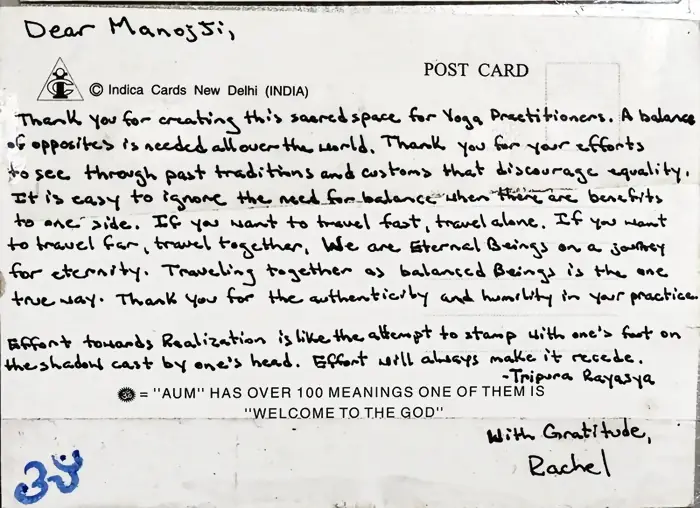 Dear Manojji,
POST CARD
© Indica Cards New Delhi (INDIA)
Thank you for creating this sacred space for Yoga Practitioners. A balance
of opposites is needed all over the world. Thank you for your efforts
to see through past traditions and customs that discourage equality.
It is easy to ignore the need for balance when there are benefits
to one side. If you want to travel fast, travel alone. If you want
to travel far, travel together. We are Eternal Beings on a journey
for eternity. Traveling together as balanced Beings is the one
true way. Thank you for the authenticity and humility in your practice.
Effort towards Realization is like the attempt to stamp with one's foot on
the shadow cast by one's head. Effort will always make it recede.
-Tripura Rayasya
ॐ = "AUM" HAS OVER 100 MEANINGS ONE OF THEM IS
"WELCOME TO THE GOD"
With Gratitude,
Rachel
ॐ